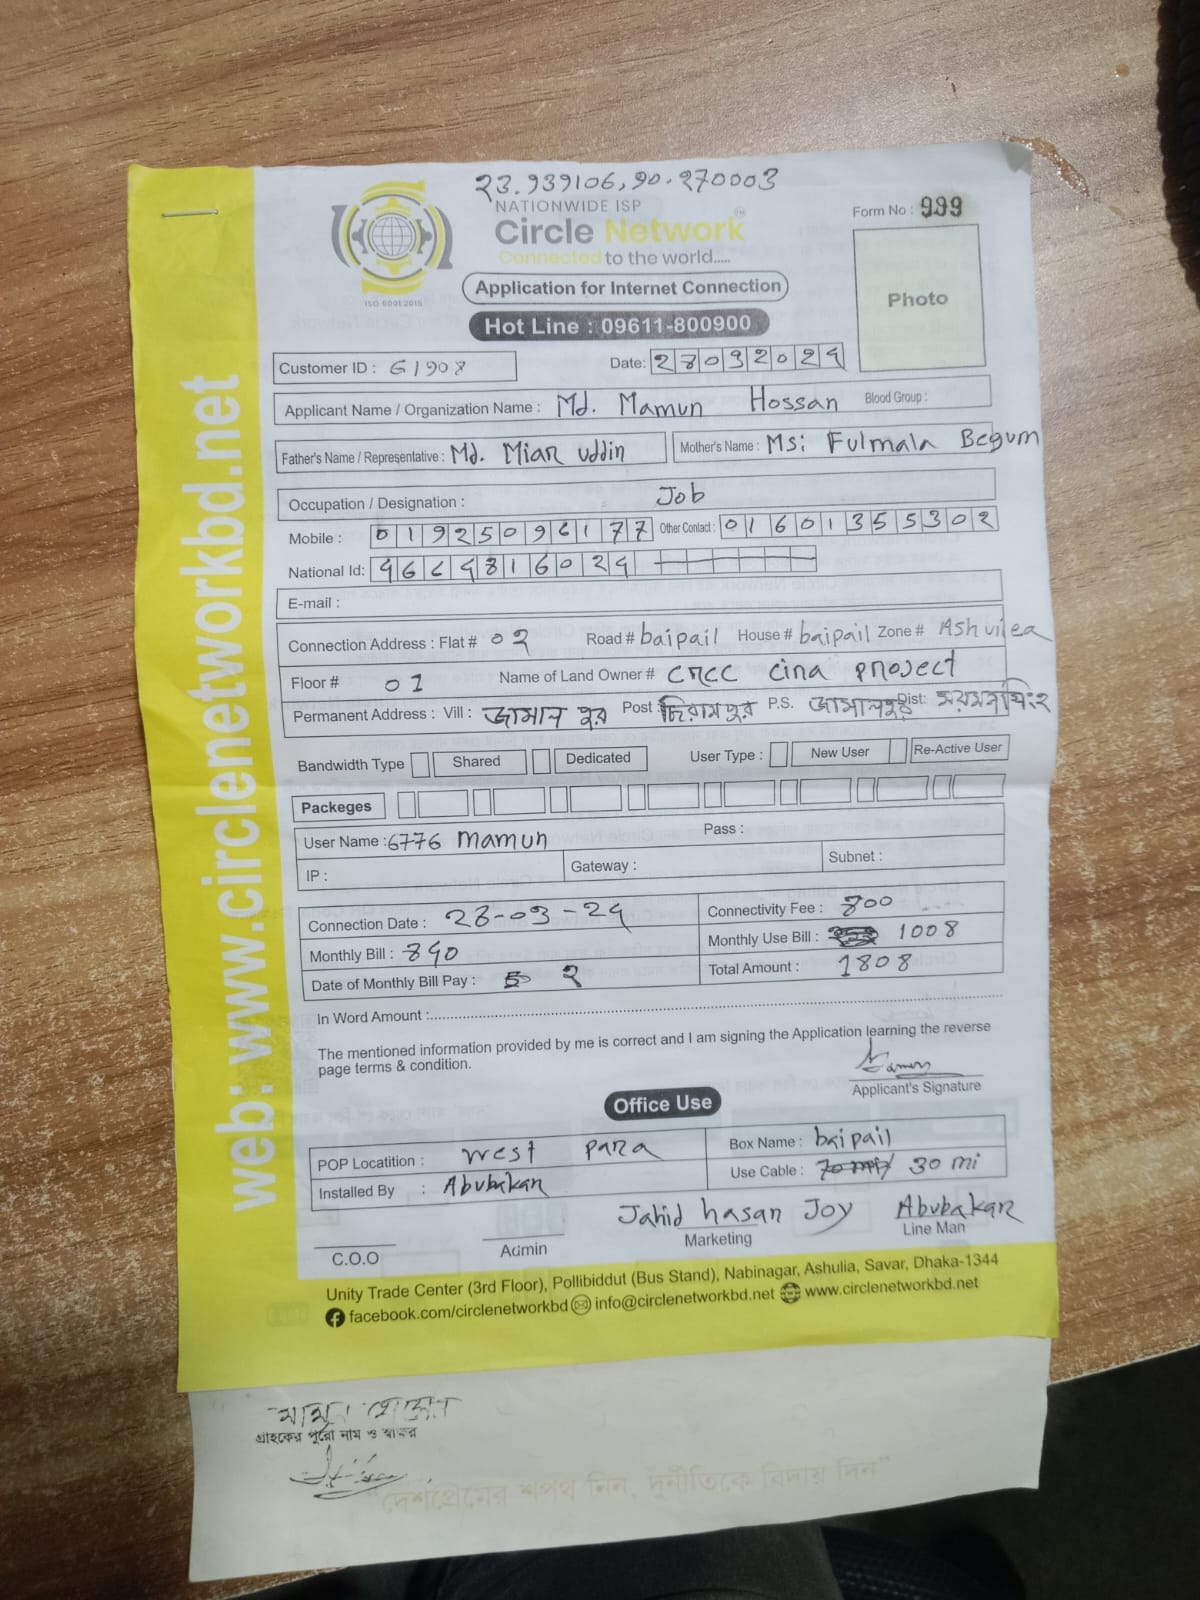 23.939106, 90.270003
NATIONWIDE ISP
Circle Network
Connected to the world.....
ISO 9001:2015
Form No : 939
Photo
Application for Internet Connection
Hot Line : 09611-800900
Customer ID : G1908
Date: 28032024
Applicant Name / Organization Name : Md. Mamun Hossan Blood Group :
Father's Name / Representative : Md. Mian uddin Mother's Name : Msi Fulmala Begum
Occupation / Designation : Job
Mobile : 01925096177 Other Contact : 01601355302
National Id: 4664816024
E-mail :
Connection Address : Flat # 02 Road # baipail House # baipail Zone # Ashulea
Floor # 01 Name of Land Owner # CRCC cina project
Permanent Address : Vill : জামাল পুর Post : দিরামপুর P.S. জামালপুর Dist:
Bandwidth Type Shared Dedicated User Type : New User Re-Active User
Packeges
User Name : 6776 mamun Pass :
IP : Gateway : Subnet :
Connection Date : 28-03-24 Connectivity Fee : 800
Monthly Bill : 840 Monthly Use Bill : 1008
Date of Monthly Bill Pay : 2 Total Amount : 1808
In Word Amount :
The mentioned information provided by me is correct and I am signing the Application learning the reverse
page terms & condition.
Applicant's Signature
Office Use
POP Locatition : west para Box Name : baipail
Installed By : Abubakar Use Cable : 30 mi
Jahid hasan Joy Abubakar
C.O.O Admin Marketing Line Man
Unity Trade Center (3rd Floor), Pollibiddut (Bus Stand), Nabinagar, Ashulia, Savar, Dhaka-1344
facebook.com/circlenetworkbd info@circlenetworkbd.net www.circlenetworkbd.net
web: www.circlenetworkbd.net
গ্রাহকের পুরো নাম ও স্বাক্ষর
"দেশপ্রেমের শপথ নিন, দুর্নীতিকে বিদায় দিন"